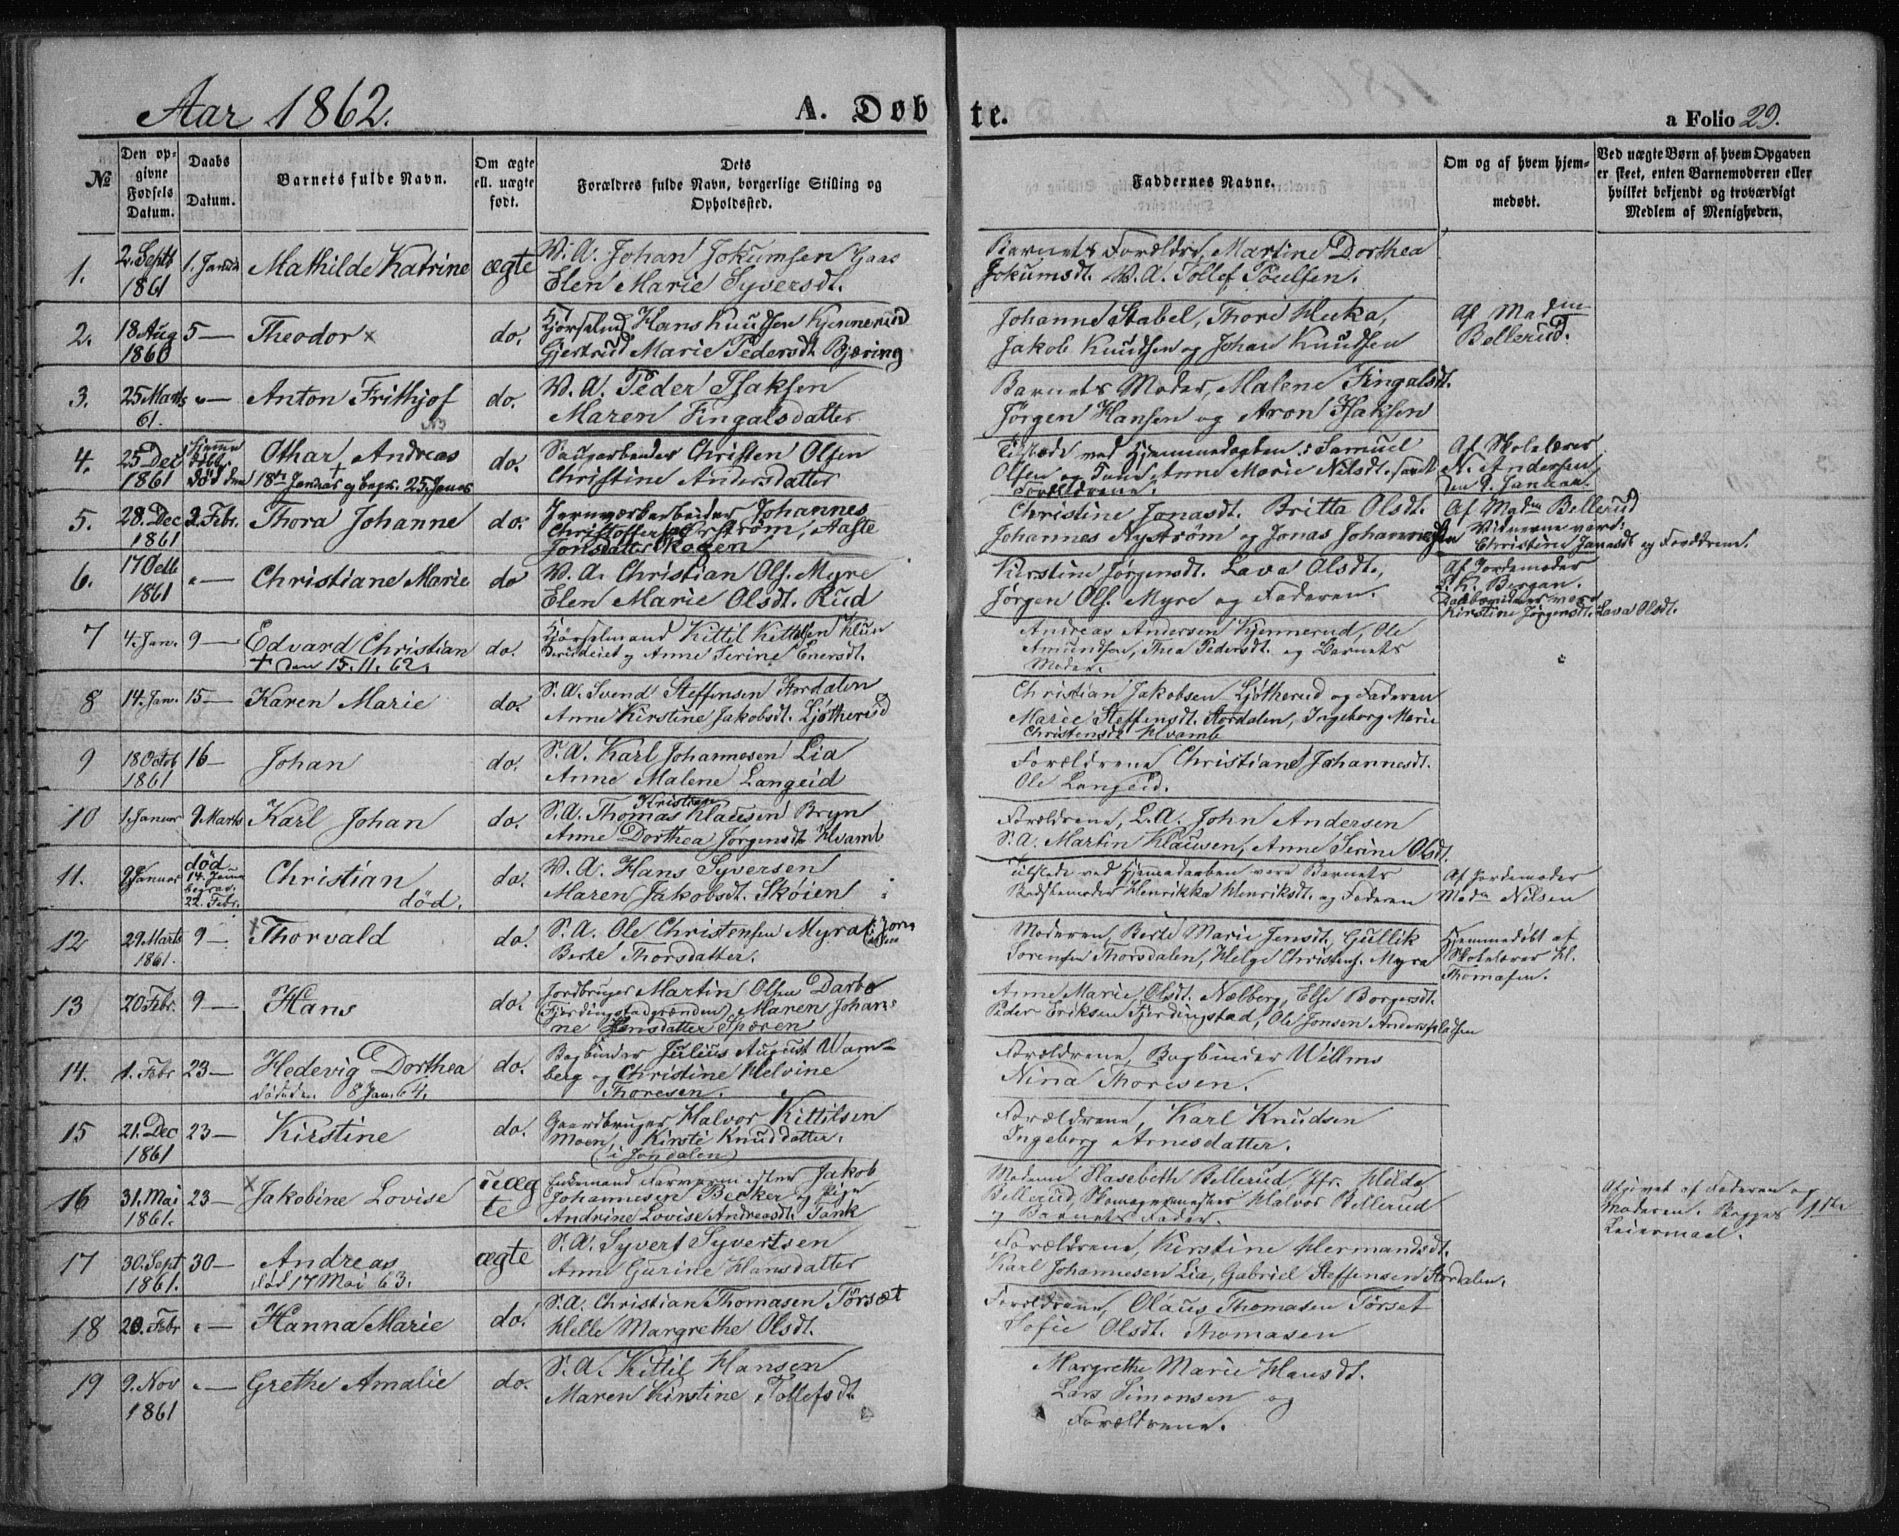 Aar 1862.
A. Døbte.
a Folio 29.
№
Den opgivne Fødsels Datum.
Daabs Datum.
Barnets fulde Navn.
Om ægte ell. uægte født.
Dets Forældres fulde Navn, borgerlige Stilling og Opholdssted.
Faddernes Navne.
Om og af hvem hjemmedøbt.
Ved uægte Børn af hvem Opgaven er skeet, enten Barnemoderen eller hvilket bekjendt og troværdigt Medlem af Menigheden.
1. 2. Septb 1861 1. Januar Mathilde Katrine ægte
V. A. Johan Jokumsen Gaas
Elen Marie Syversdt.
Barnets Forældre, Martine Dorthea
Jokumsdt. V. A. Tollef Poulsen.
2. 18 Aug 1860 5 — Theodor × do.
Kjørselmd Hans Knudsen Kjennerud
Gjertrud Marie Pedersdt. Bjæring
Johanne Stabel, Thore Huka,
Jakob Knudsen og Johan Knudsen
Af Madme
Bellerud.
3. 25 Marts 61. " — Anton Frithjof do.
V. A. Peder Isaksen
Maren Fingalsdatter
Barnets Moder, Malene Fingalsdt.
Jørgen Hansen og Aron Isaksen
4. 25 Dec 1861 Othar Andreas do.
død den 18de Januar og begr. 25 Januar
Saugarbeider Christen Olsen
Christine Andersdatter
Tilstede ved Hjemmedaaben: Samuel
Olsen og Anne Marie Nilsdt. samt
Forældrene.
Af Skolelærer
N. Andersen
den 9. Januar.
5. 28. Dec 1861 2. Febr. Thora Johanne do.
Jernværkarbeider Johannes
Christoffersen Aaste
Jonsdatter Skogen
Christine Jonasdt. Britta Olsdt.
Johannes Nystrøm og Jonas Johannessen
Af Madm Bellerud
Vidnerne vard:
Christine Jonasdt og Forældrene.
6. 17 Octb 1861 " — Christiane Marie do
V. A. Christian Ols. Myre
Elen Marie Olsdt. Rud
Kirstine Jørgensdt. Lava Olsdt.,
Jørgen Ols. Myre og Faderen.
Af Jordemoder
Bergan.
Kirstine Jørgensdt. Lava Olsdt.
7 4. Jan. 9 — Edvard Christian do.
+ den 15. 11. 62.
Kjørselmand Kittil Kittelsen
og Anne Serine Enersdt.
Andreas Andersen Kjennerud, Ole
Amundsen, Thea Pedersdt. og Barnets
Moder.
8 14. Jan. 15 — Karen Marie do.
S. A. Svend Steffensen Stordalen
Anne Kirstine Jakobsdt. Ljøtherud
Christian Jakobsen Ljøtherud og Faderen
Marie Steffensdt. Stordalen, Ingeborg Marie
Christensdt Kvamb
9 18 Octob 1861 16 — Johan do.
S. A. Karl Johannesen Lia
Anne Malene Langeid
Forældrene Christiane Johannesdt.
Ole Langeid.
10 1. Januar 9 Marts Karl Johan do.
S. A. Thomas Kristian Klausen Bryn
Anne Dorthea Jørgensdt. Kvamb
Forældrene, L. A. John Andersen
S. A. Martin Klausen, Anne Serine Olsdt.
11. 9 Januar død 14. Janu begrav. 22. Febr. Christian død. do.
V. A. Hans Syversen
Maren Jakobsdt. Skøien
Tilstede ved Hjemmedaaben vare Barnets
Bedstemoder Henrikka Henriksdt. og Faderen
Af Jordemoder
Madm Nilsen
12 29 Marts 1861. 9 — Thorvald do.
S. A. Ole Christensen Myra
Berte Thorsdatter.
Moderen, Berte Marie Jensdt., Gullik
Sørensen Thorsdalen, Helge Christens. Myra
Hjemmedøbt af
Skolelærer Kl.
Thomasen.
13 20 Febr. 9 — Hans do.
Jordbruger Martin Olsen Darbo
(Fjerdingstadgrænden) Maren Johanne
Hansdatter Spæren
Anne Marie Olsdt. Nælberg, Else Borgersdt.
Peder Eriksen Fjerdingstad, Ole Jonsen
14. 1. Febr 23 — Hedevig Dorthea do.
døde d. 8 Jan. 64.
Bogbinder Julius August Wamberg
og Christine Helvine
Thoresen.
Forældrene, Bogbinder Willms
Nina Thoresen.
15 21. Dec 1861 23 — Kirstine do.
Gaardbruger Halvor Kittilsen
Moen, Kirste Knudsdatter.
(i Jondalen)
Forældrene, Karl Knudsen
Ingeborg Arnesdatter.
16 31. Mai 1861. 23 — Jakobine Lovise uægte
Jakob
Johannesen Becker og Pige
Andrine Lovise Andreasdt. Tank
Madame Elasebeth Bellerud, Jfr. Hilda
Bellerud, Skomagermester Halvor Bellerud
og Barnets Fader.
Angivet af Faderen og
Moderen. Begges 1ste
Leiermaal.
17 30. Sept 1861. 30 — Andreas ægte
død 17 Mai 63.
S. A. Syvert Syvertsen
Anne Gurine Hansdatter
Forældrene, Kirstine Hermandsdt.
Karl Johannesen Lia, Gabriel Steffensen Stordalen.
18 20. Febr " — Hanna Marie do.
S. A. Christian Thomasen Tørset
Helle Margrethe Olsdt.
Forældrene, Olaus Thomasen Tørset
Sofie Olsdt. Thomasen
19 9. Nov 1861 " — Grethe Amalie do.
S. A. Kittil Hansen
Maren Kirstine Tollefsdt
Margrethe Marie Hansdt.
Lars Simonsen og
Forældrene.